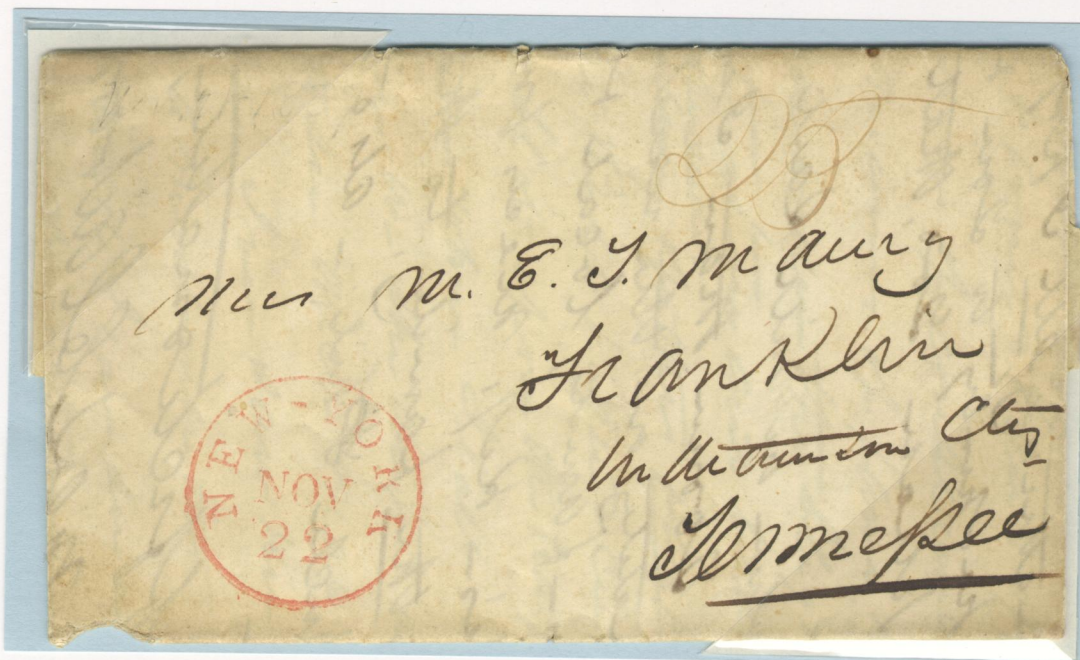 25
Miss M. E. T. Maury
Franklin
Williamson Cty
Tennessee
NEW-YORK
NOV
22